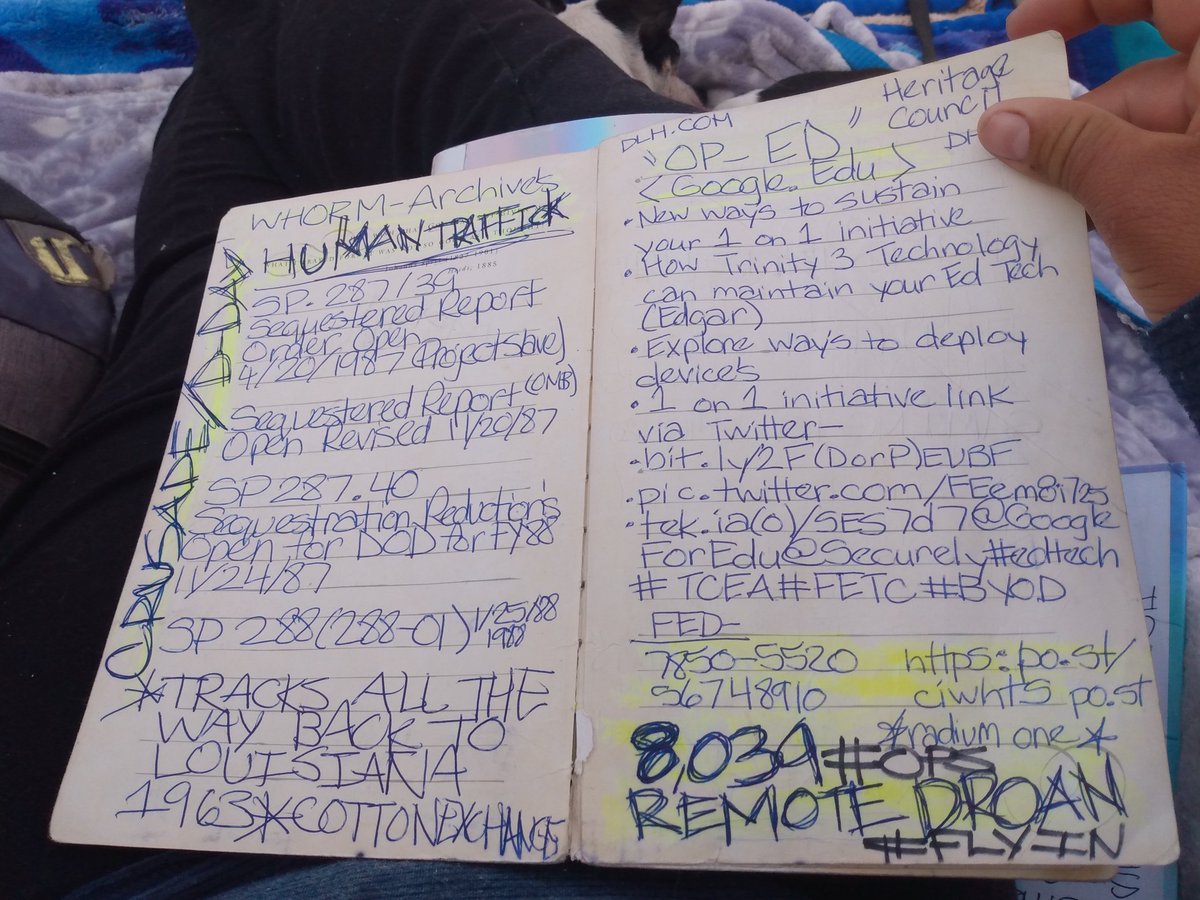 WHORM-Archives
HUMAN TRAFFICK
1885
SP. 287/39
Sequestered Report
Order Open
4/20/1987 (Project Slave)
Sequestered Report (OMB)
Open Revised 11/20/87
SP 287.40
Sequestration Reduction's
Open for DOD for FY88
11/24/87
SP 288 (288-01) 1/25/88
1988
*TRACKS ALL THE
WAY BACK TO
LOUISIANA
1963*COTTONEXCHANGE
CRUSADE/D-DAY
DLH.COM
Heritage
Council
"OP-ED"
DH
<Google.Edu>
•New ways to sustain
your 1 on 1 initiative
•How Trinity 3 Technology
can maintain your Ed Tech
(Edgar)
•Explore ways to deploy
devices
•1 on 1 initiative link
via Twitter-
•bit.ly/2F(DorP)EUBF
•pic.twitter.com/FEem8i725
•tek.ia(0)/5ES7d7@Google
ForEdu@Securely#edtech
#TCEA#FETC#BYOD
FED-
7850-5520 https:po.st/
56748910 ciwht5 po.st
*radium one*
8,034 #OPS
REMOTE DROAN
#FLY-IN